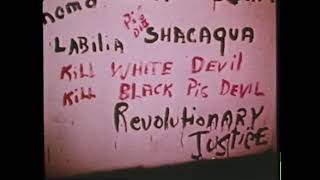 Pig
LABILIA SHACAQUA
Kill WHITE DEVIL
Kill BLACK Pig DEVIL
REVOLUTIONARY
JUSTICE